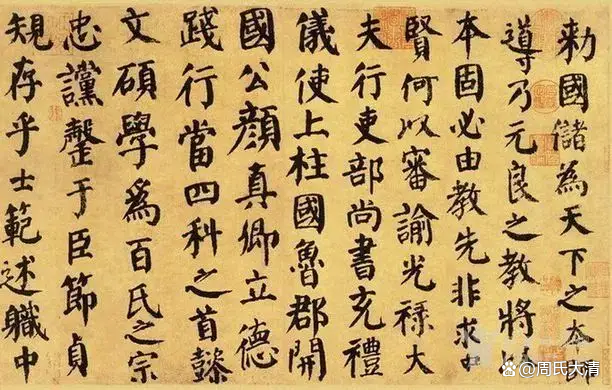 勑國儲為天下之本
導乃元良之教將以
本固必由教先非求
賢何以審諭光祿大
夫行吏部尚書充禮
儀使上柱國魯郡開
國公顏真卿立德
踐行當四科之首懿
文碩學爲百氏之宗
忠讜罄于臣節貞
規存乎士範述職中
@周氏大清